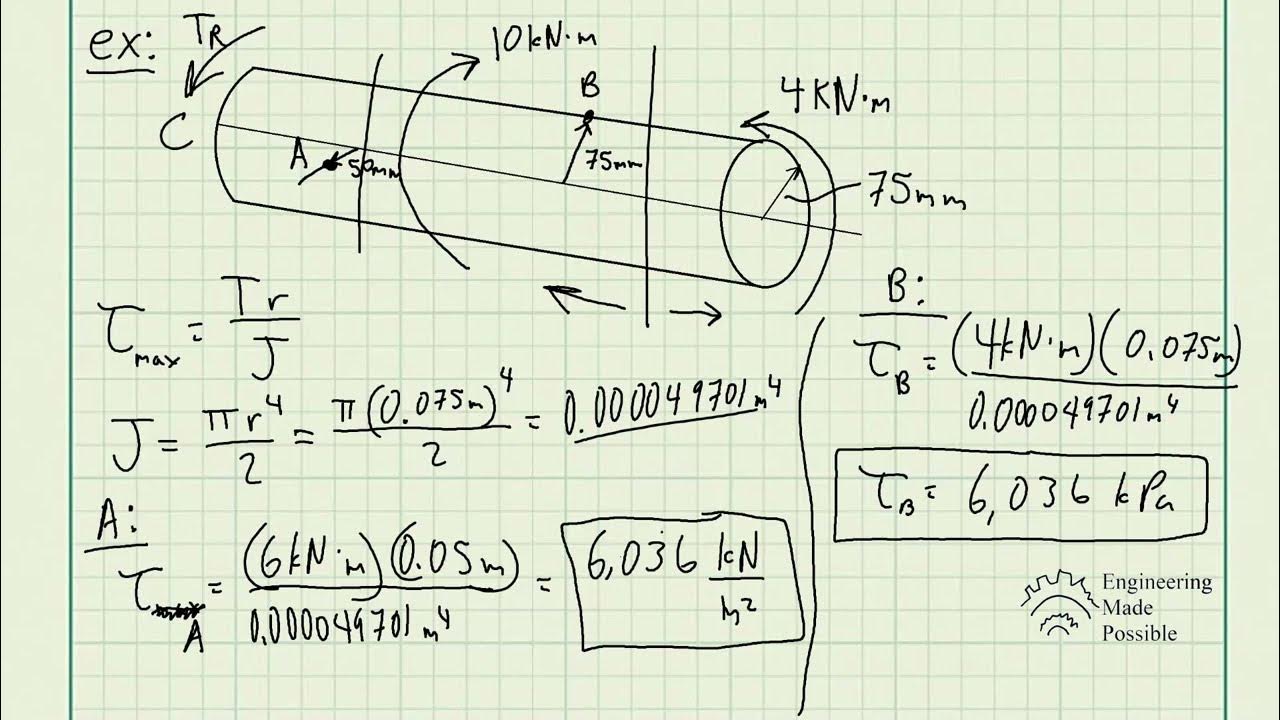 ex:
T_R
10kN·m
B
4KN·m
C
A
50mm
75mm
75mm
τ_max = Tr/J
J = πr⁴/2 = π(0.075m)⁴/2 = 0.000049701m⁴
A:
τ_A = (6kN·m)(0.05m)/0.000049701m⁴ = 6,036 kN/m²
B:
τ_B = (4kN·m)(0.075m)/0.000049701m⁴
τ_B = 6,036 kPa
Engineering
Made
Possible